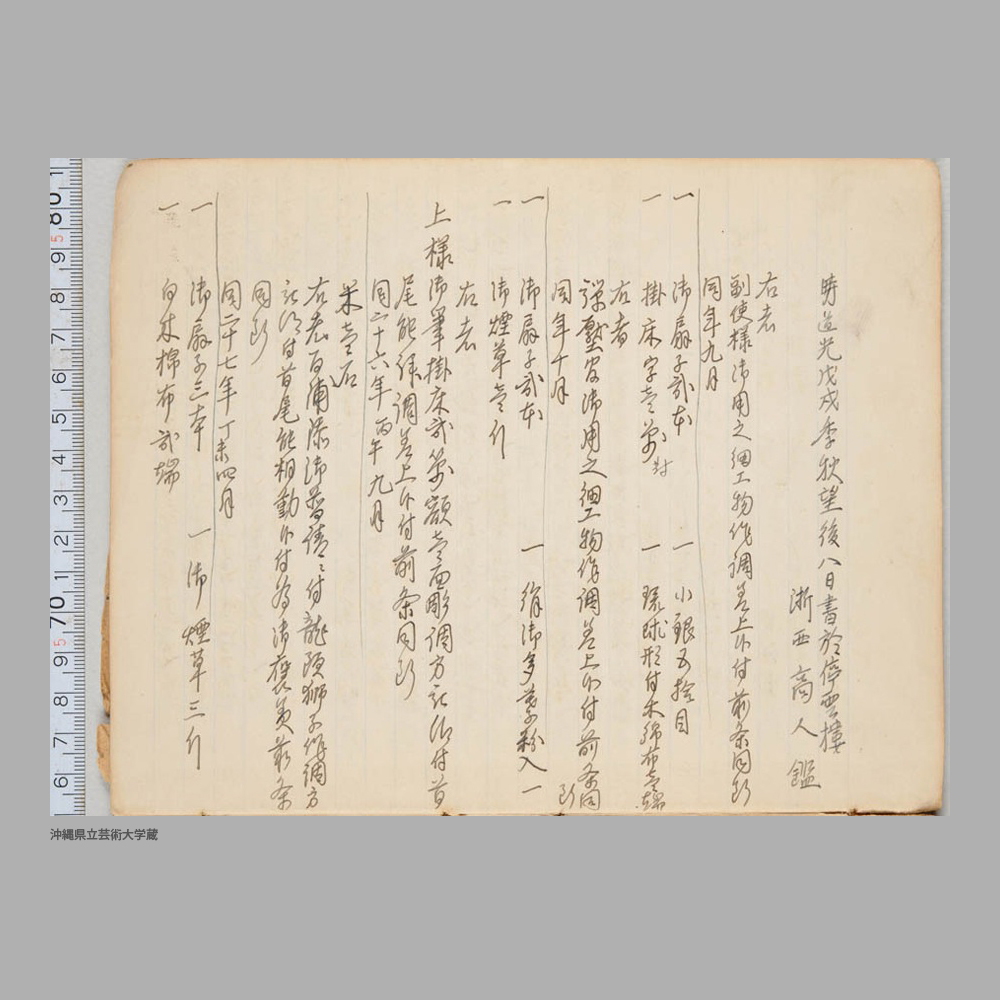 時道光戊戌季秋望後八日書於停雲樓
浙西商人 鑑
右者
副使様御用之細工物作調差上候付前条同断
同年九月
一 御扇子弐本 一 小銀五拾目
一 掛床字壱箇 一 琉球形付木綿布壱端
右者
御用之細工物作調差上候付前条同断
同年十月
一 御扇子弐本 一 絹御多葉粉入一
一 御煙草壱斤
右者
上様御筆掛床弐箇額壱面彫調方被仰付首
尾能調差上候付前条同断
同二十六年丙午九月
米壱石
右者百浦添御普請ニ付龍頭獅子作調方
被仰付首尾能相勤候付為御褒美前条
同断
同二十七年丁未四月
一 御扇子三本 一 御煙草三斤
一 白木棉布弐端
沖縄県立芸術大学蔵